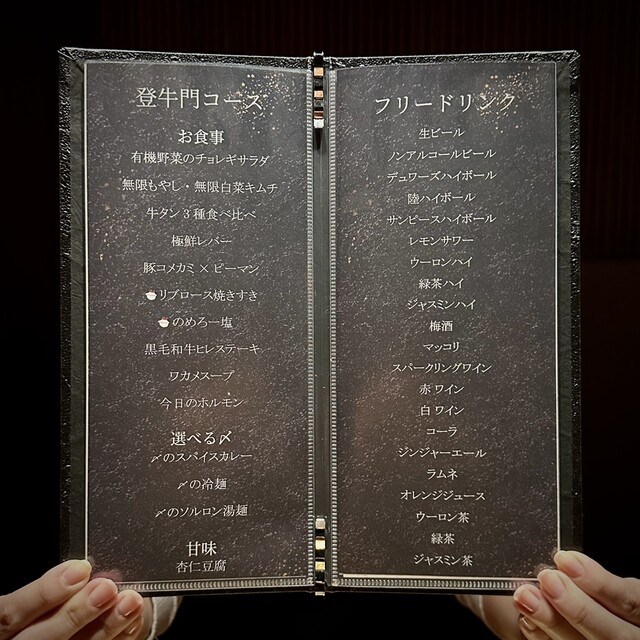 登牛門コース
お食事
有機野菜のチョレギサラダ
無限もやし・無限白菜キムチ
牛タン3種食べ比べ
極鮮レバー
豚コメカミ×ピーマン
🍚リブロース焼きすき
🍚のめろー塩
黒毛和牛ヒレステーキ
ワカメスープ
今日のホルモン
選べる〆
〆のスパイスカレー
〆の冷麺
〆のソルロン湯麺
甘味
杏仁豆腐
フリードリンク
生ビール
ノンアルコールビール
デュワーズハイボール
陸ハイボール
サンピースハイボール
レモンサワー
ウーロンハイ
緑茶ハイ
ジャスミンハイ
梅酒
マッコリ
スパークリングワイン
赤ワイン
白ワイン
コーラ
ジンジャーエール
ラムネ
オレンジジュース
ウーロン茶
緑茶
ジャスミン茶